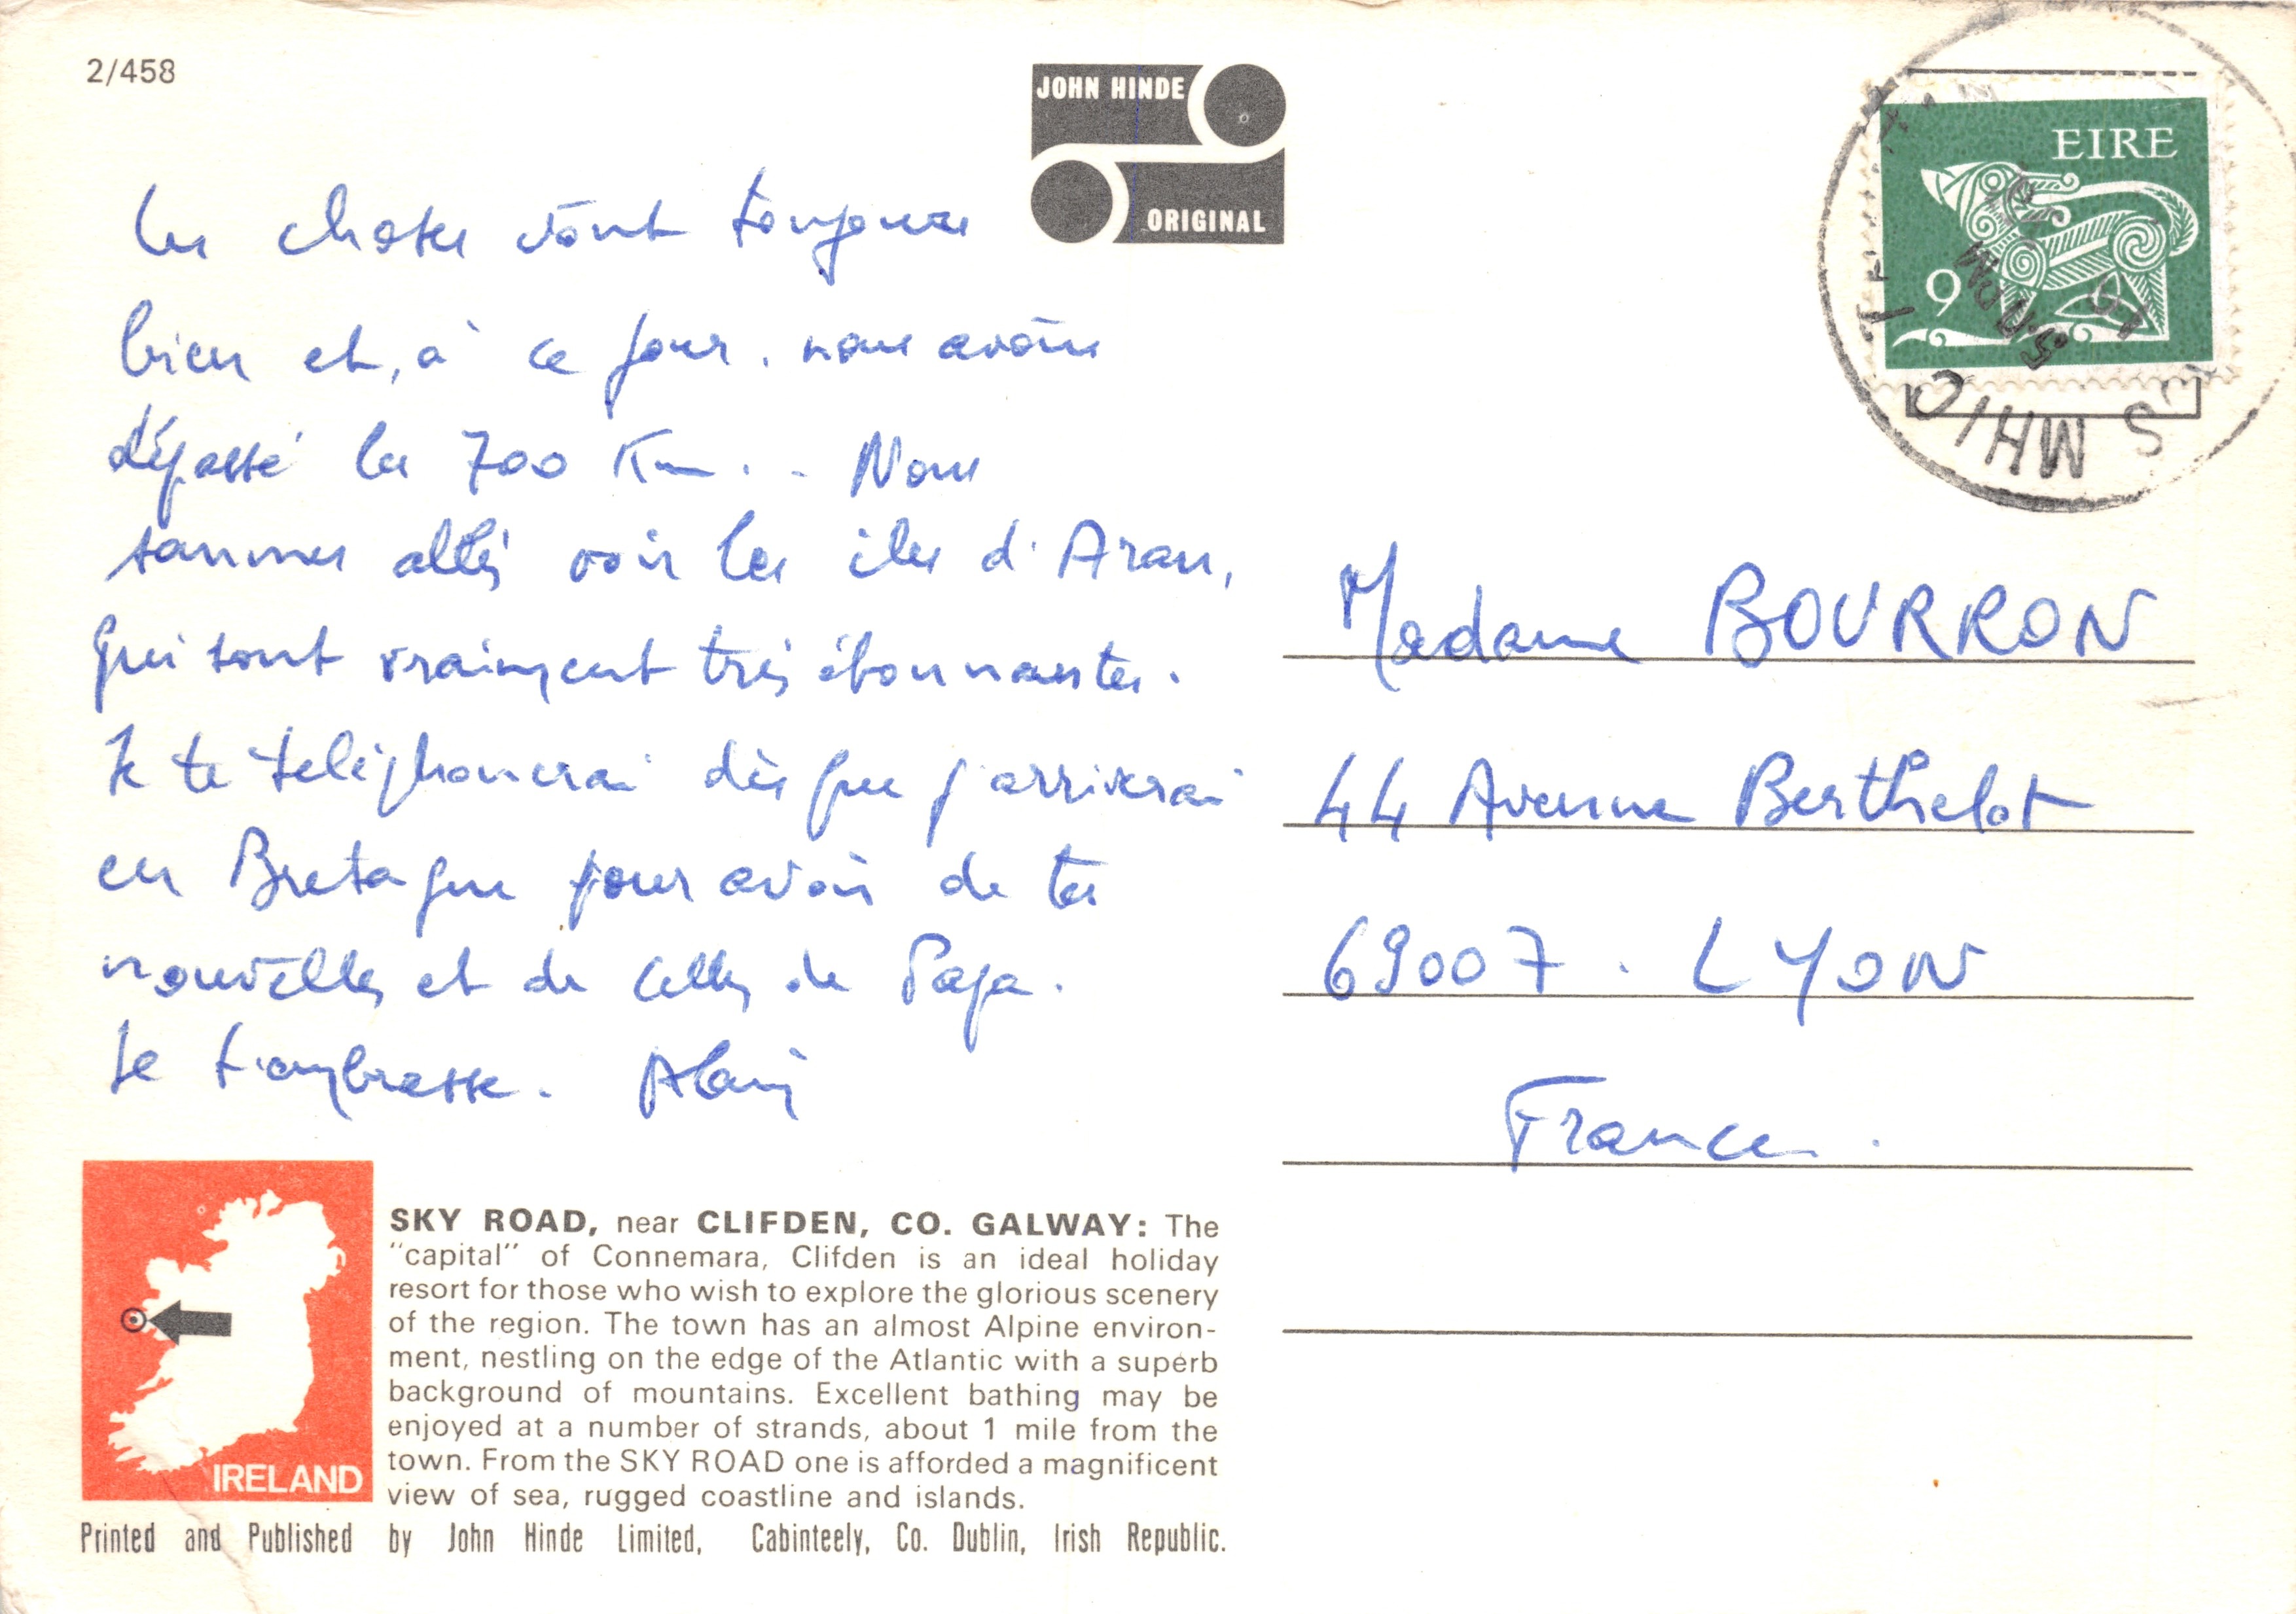 2/458
JOHN HINDE
ORIGINAL
EIRE
9
5.0 PM
S MHIC
Les choses vont toujours
bien et, à ce jour, nous avons
dépassé les 700 Km... Nous
sommes allés voir les iles d'Aran,
qui sont vraiment très étonnantes.
Je te téléphonerai dès que j'arriverai
en Bretagne pour avoir de tes
nouvelles et de celles de Papa.
Je t'embrasse. Alain
Madame BOURRON
44 Avenue Berthelot
69007. LYON
France.
IRELAND
SKY ROAD, near CLIFDEN, CO. GALWAY: The
"capital" of Connemara, Clifden is an ideal holiday
resort for those who wish to explore the glorious scenery
of the region. The town has an almost Alpine environ-
ment, nestling on the edge of the Atlantic with a superb
background of mountains. Excellent bathing may be
enjoyed at a number of strands, about 1 mile from the
town. From the SKY ROAD one is afforded a magnificent
view of sea, rugged coastline and islands.
Printed and Published by John Hinde Limited, Cabinteely, Co. Dublin, Irish Republic.